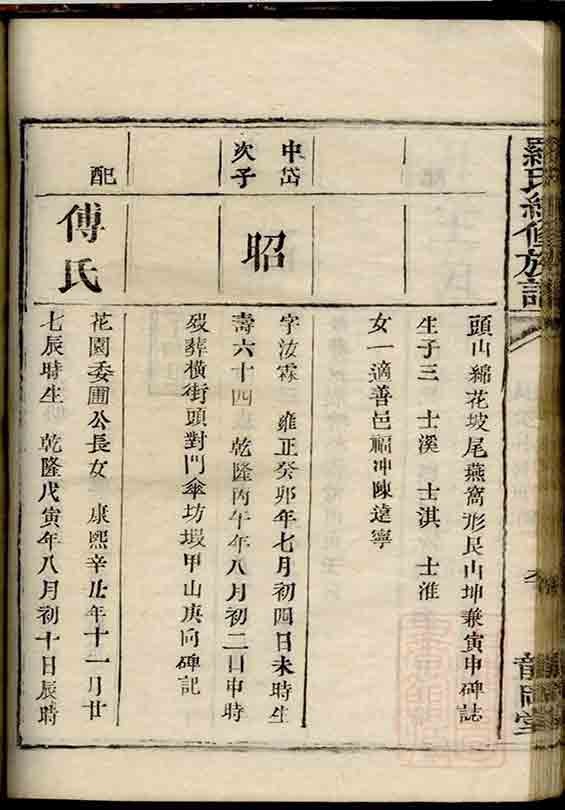 羅氏續修族譜
頭山綿花坡尾燕窩形艮山坤兼寅申碑誌
生子三 士溪 士淇 士淮
女一適善邑福冲陳達寧
中岱
次子
昭
字汝霖 雍正癸卯年七月初四日未時生
壽六十四 乾隆丙午年八月初二日申時
歿葬橫街頭對門傘坊塅甲山庚向碑記
配
傅氏
花園委圃公長女 康熙辛丑年十一月廿
七辰時生 乾隆戊寅年八月初十日辰時